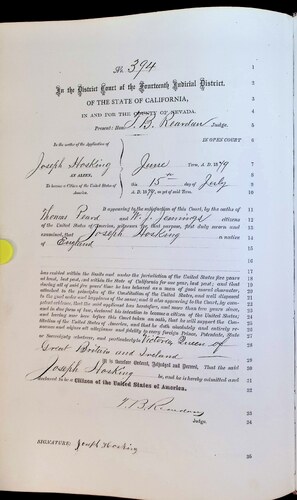 No. 394
1
In the District Court of the Fourteenth Judicial District,
2
OF THE STATE OF CALIFORNIA,
3
IN AND FOR THE COUNTY OF NEVADA.
4
Present: Hon. T. B. Reardan Judge.
5
In the matter of the Application of
IN OPEN COURT
6
Joseph Hosking
June Term, A. D. 1879
7
AN ALIEN,
8
To become a Citizen of the United States of America.
On 15th day of July
9
A. D. 1879, as yet of said Term.
10
It appearing to the satisfaction of this Court, by the oaths of
11
Thomas Peard and W. J. Jennings citizens
12
of the United States of America, witnesses for that purpose, first duly sworn and
13
examined, that Joseph Hosking a native
14
of England
15
16
has resided within the limits and under the jurisdiction of the United States five years
17
at least, last past, and within the State of California for one year, last past; and that
18
during all of said five years' time he has behaved as a man of good moral character,
19
attached to the principles of the Constitution of the United States, and well disposed
20
to the good order and happiness of the same; and it also appearing to the Court, by competent evidence, that the said applicant has heretofore, and more than two years since,
21
and in due form of law, declared his intention to become a citizen of the United States;
22
and having now here before this Court taken an oath, that he will support the Constitution of the United States of America, and that he doth absolutely and entirely renounce and abjure all allegiance and fidelity to every foreign Prince, Potentate, State
or Sovereignty whatever, and particularly to Victoria Queen of
Great Britain and Ireland
It is therefore Ordered, Adjudged and Decreed, That the said
Joseph Hosking be, and he is hereby admitted and
declared to be a Citizen of the United States of America.
T. B. Reardan
Judge.
SIGNATURE: Joseph Hosking